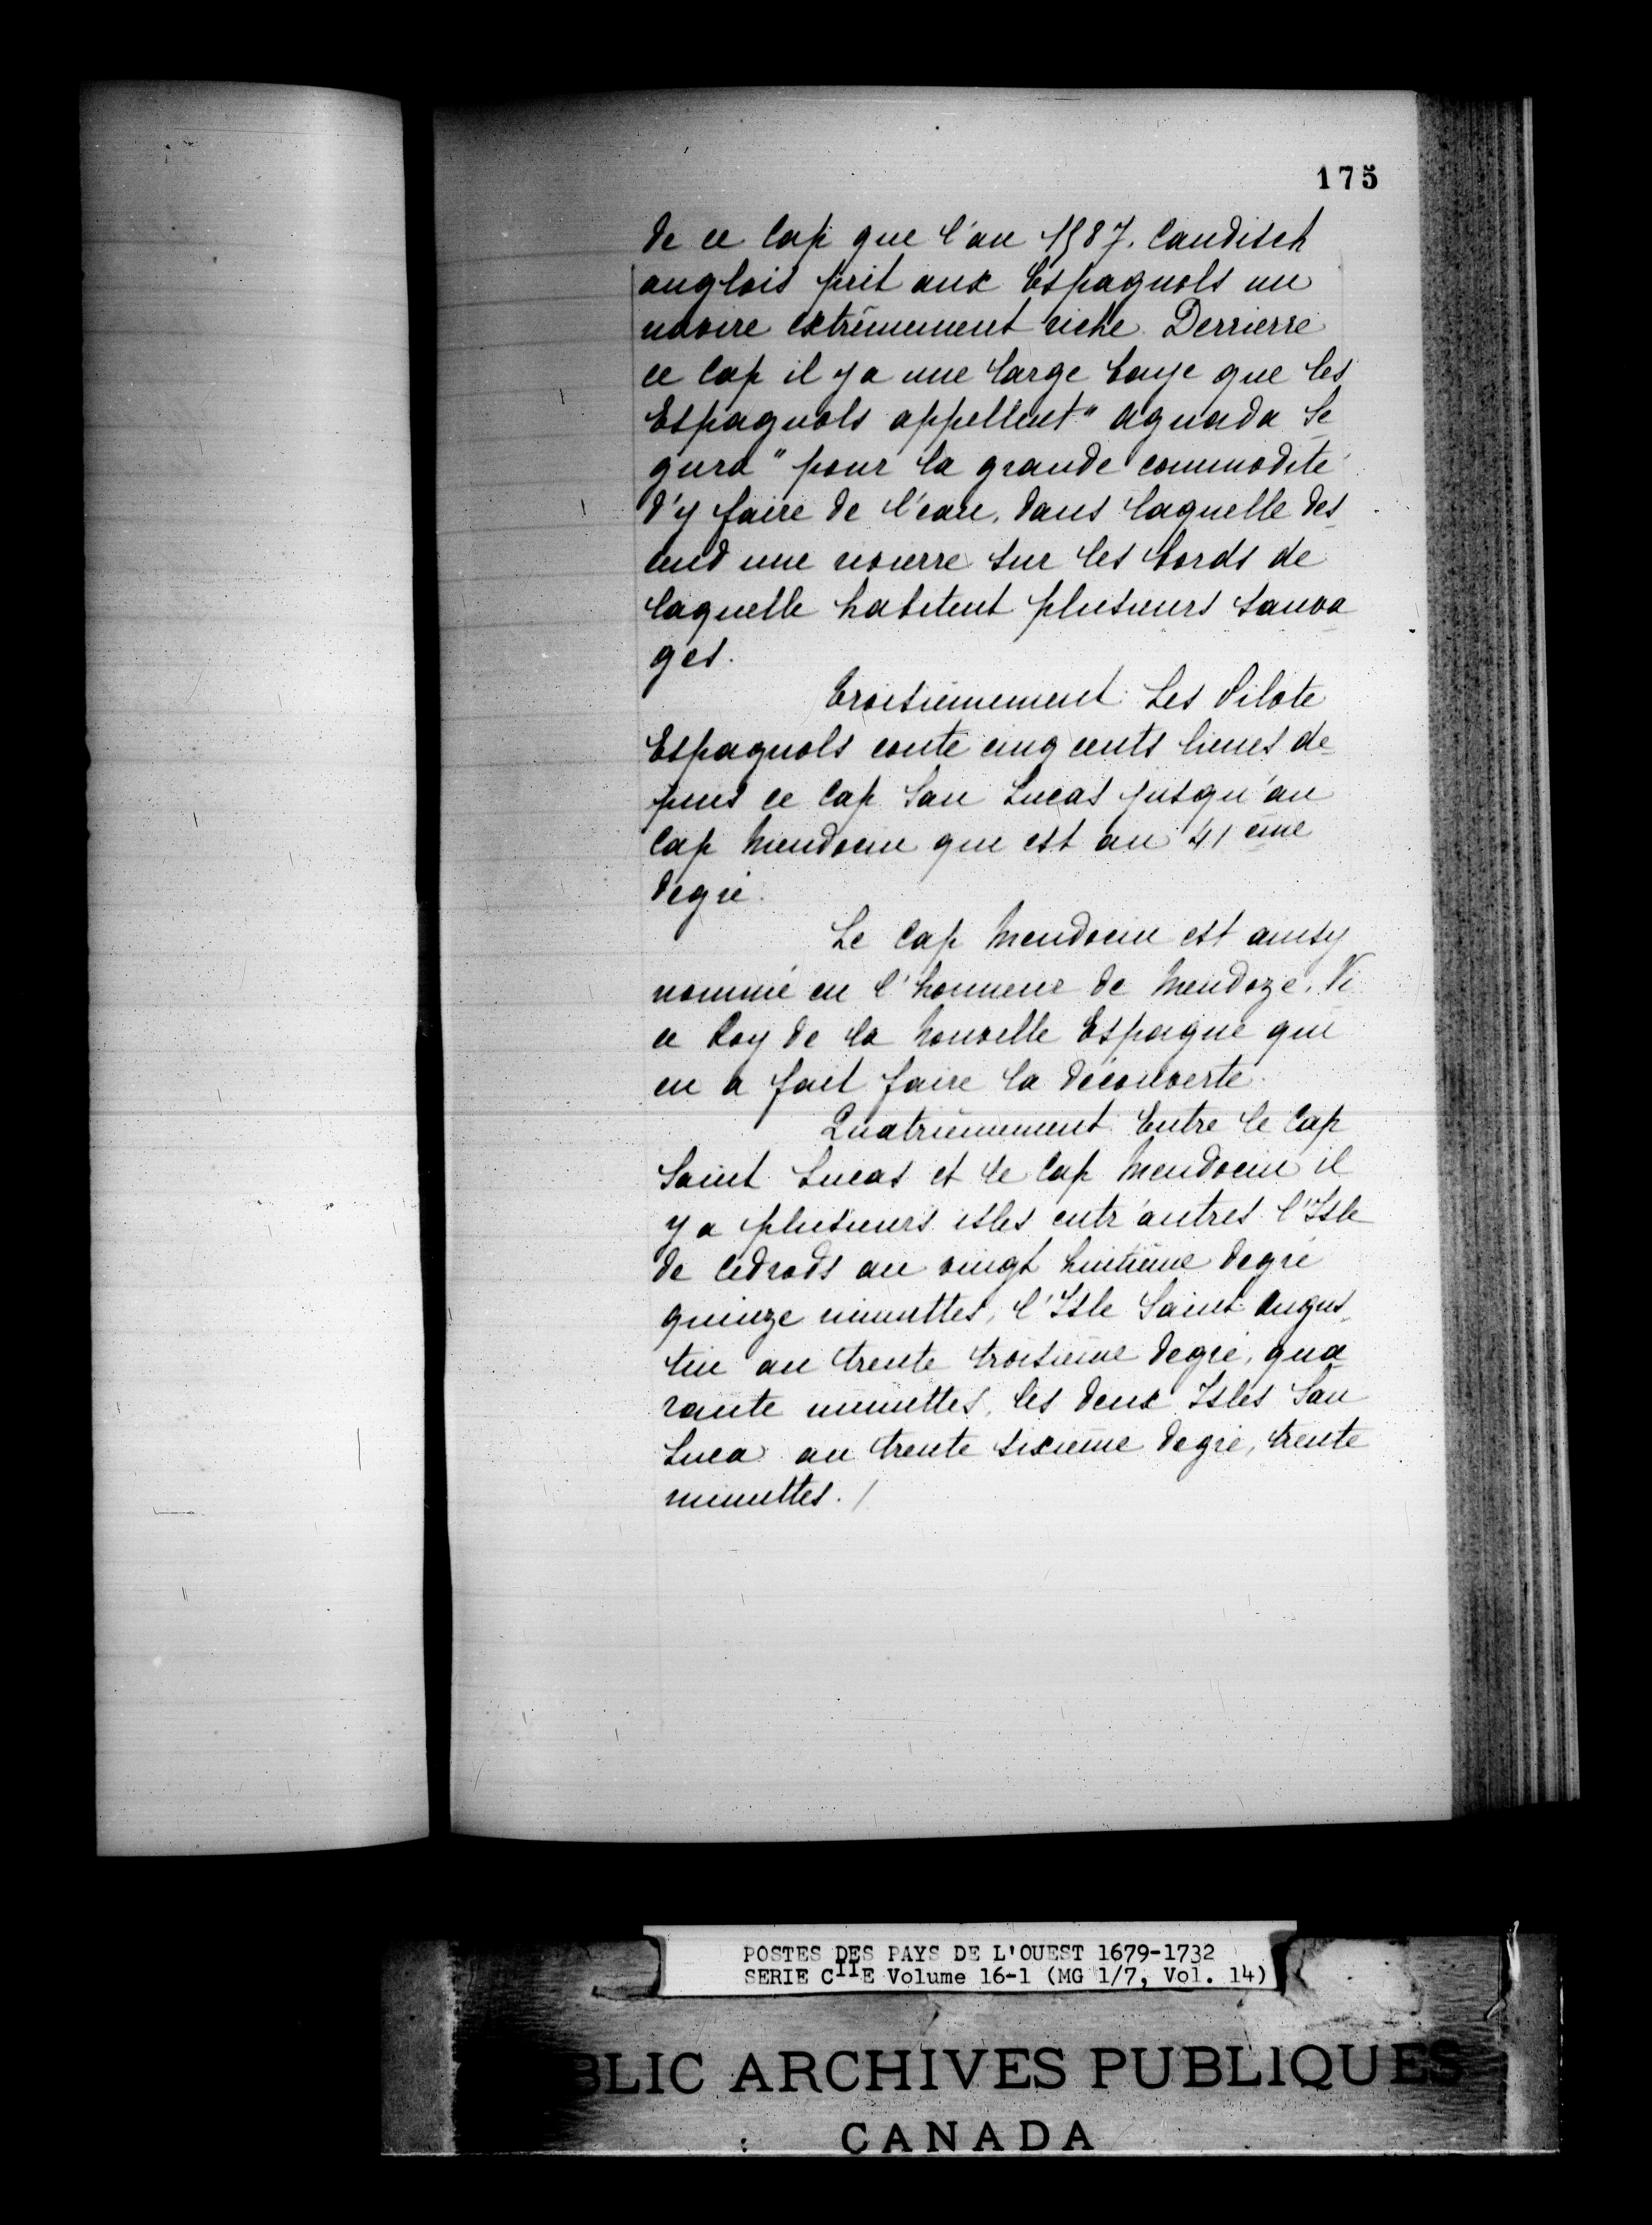 175
de ce Cap que l'an 1587. Candisch
anglois prit aux Espagnols un
navire extrêmement riche. Derrierre
ce Cap il y a une large baye que les
Espagnols appellent "Aguada Se
gura" pour la grande commodité
d'y faire de l'eau, dans laquelle des
cend une rivierre sur les bords de
laquelle habitent plusieurs sauva
ges.
Troisiemement Les Pilote
Espagnols conte cinq cents lieues de
puis ce Cap San Lucas jusqu'au
Cap Mendocin que est au 41 eme
degré.
Le Cap Mendocin est ainsy
nommé en l'honneur de Mendoze. Vi
ce Roy de la Nouvelle Espagne qui
en a fait faire la découverte.
Quatriemement Entre le Cap
Saint Lucas et le Cap Mendocin il
y a plusieurs isles entr'autres l'Isle
de Cedrods au vingt huitieme degré
quinze minuttes, l'Isle Saint Augus
tin au trente troisieme degré, qua
rante minuttes, les deux Isles San
Luca au trente sixieme degré, trente
minuttes. /
POSTES DES PAYS DE L'OUEST 1679-1732
SERIE CIIE Volume 16-1 (MG 1/7, Vol. 14)
BLIC ARCHIVES PUBLIQUES
CANADA